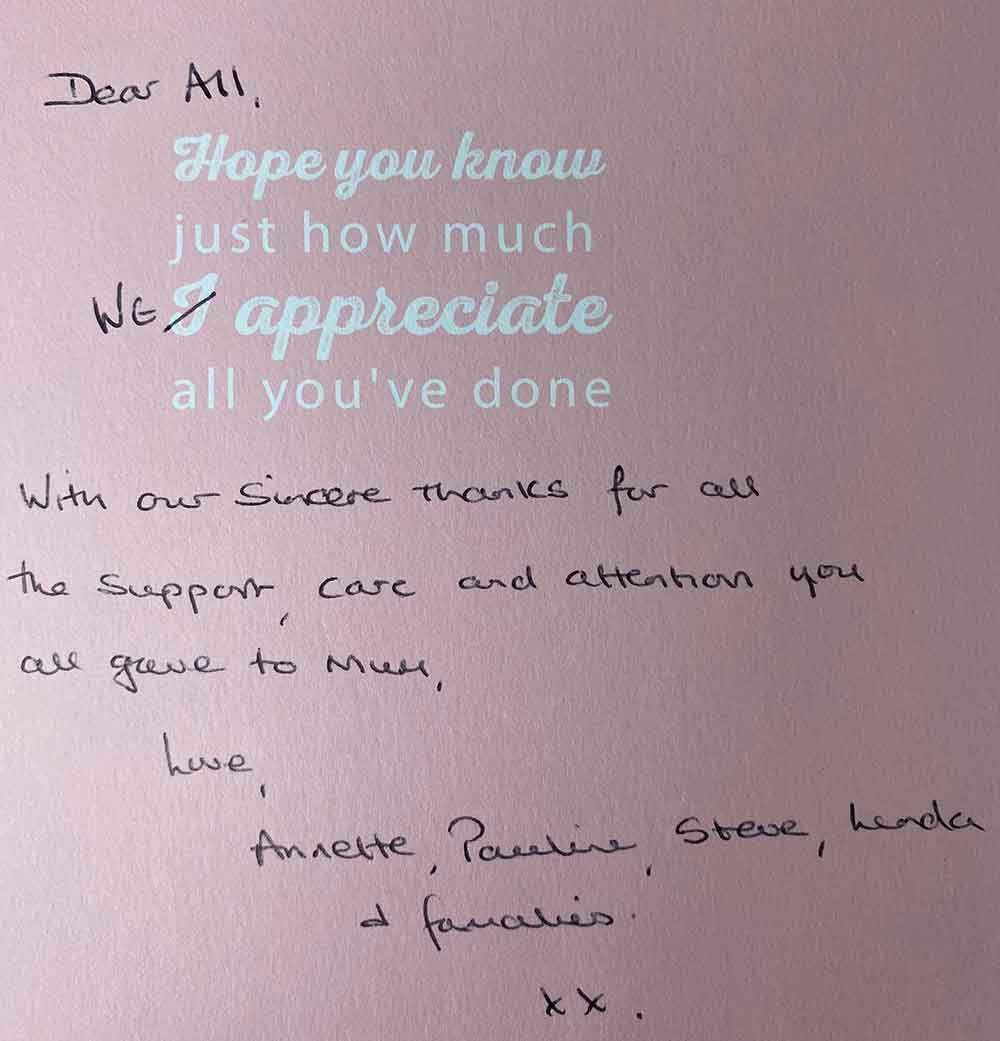 Dear All,
Hope you know
just how much
WE I appreciate
all you've done
With our sincere thanks for all
the support, care and attention you
all gave to Mum,
Love,
Annette, Pauline, Steve, Lynda
& families.
xx.